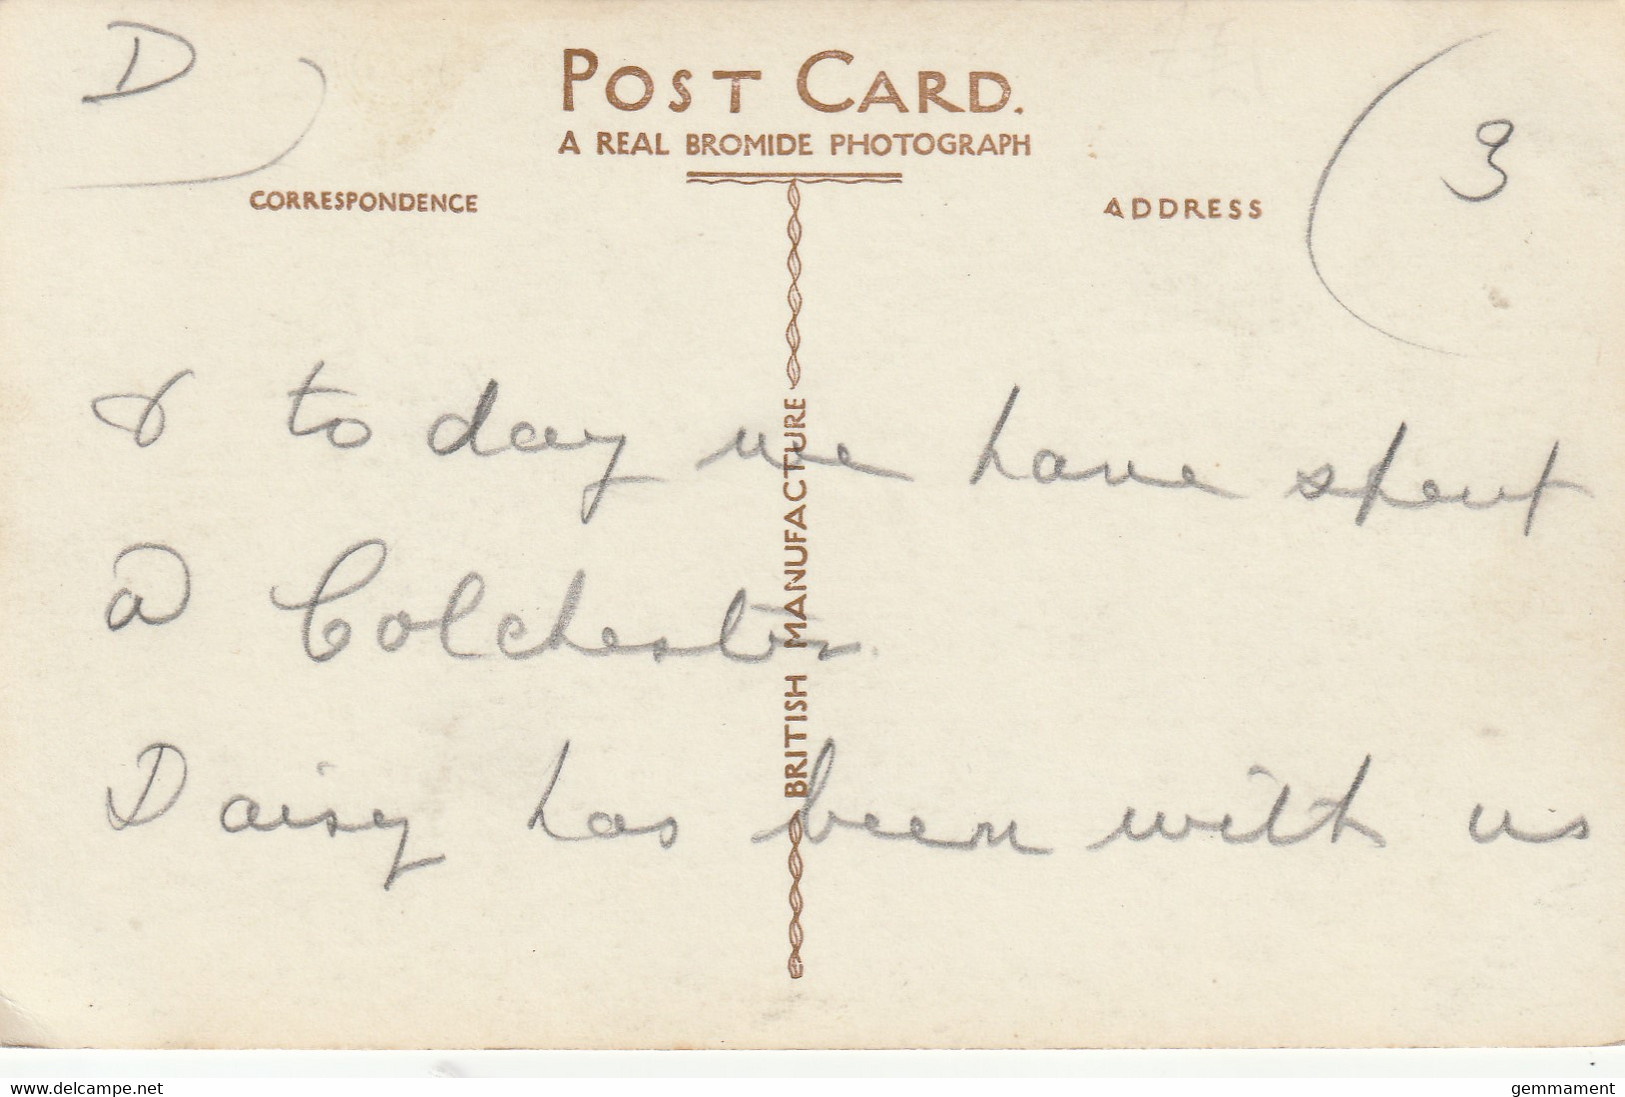 D
POST CARD.
A REAL BROMIDE PHOTOGRAPH
3
CORRESPONDENCE
ADDRESS
& to day we have spent
@ Colchester.
Daisy has been with us
BRITISH MANUFACTURE
www.delcampe.net
gemmament